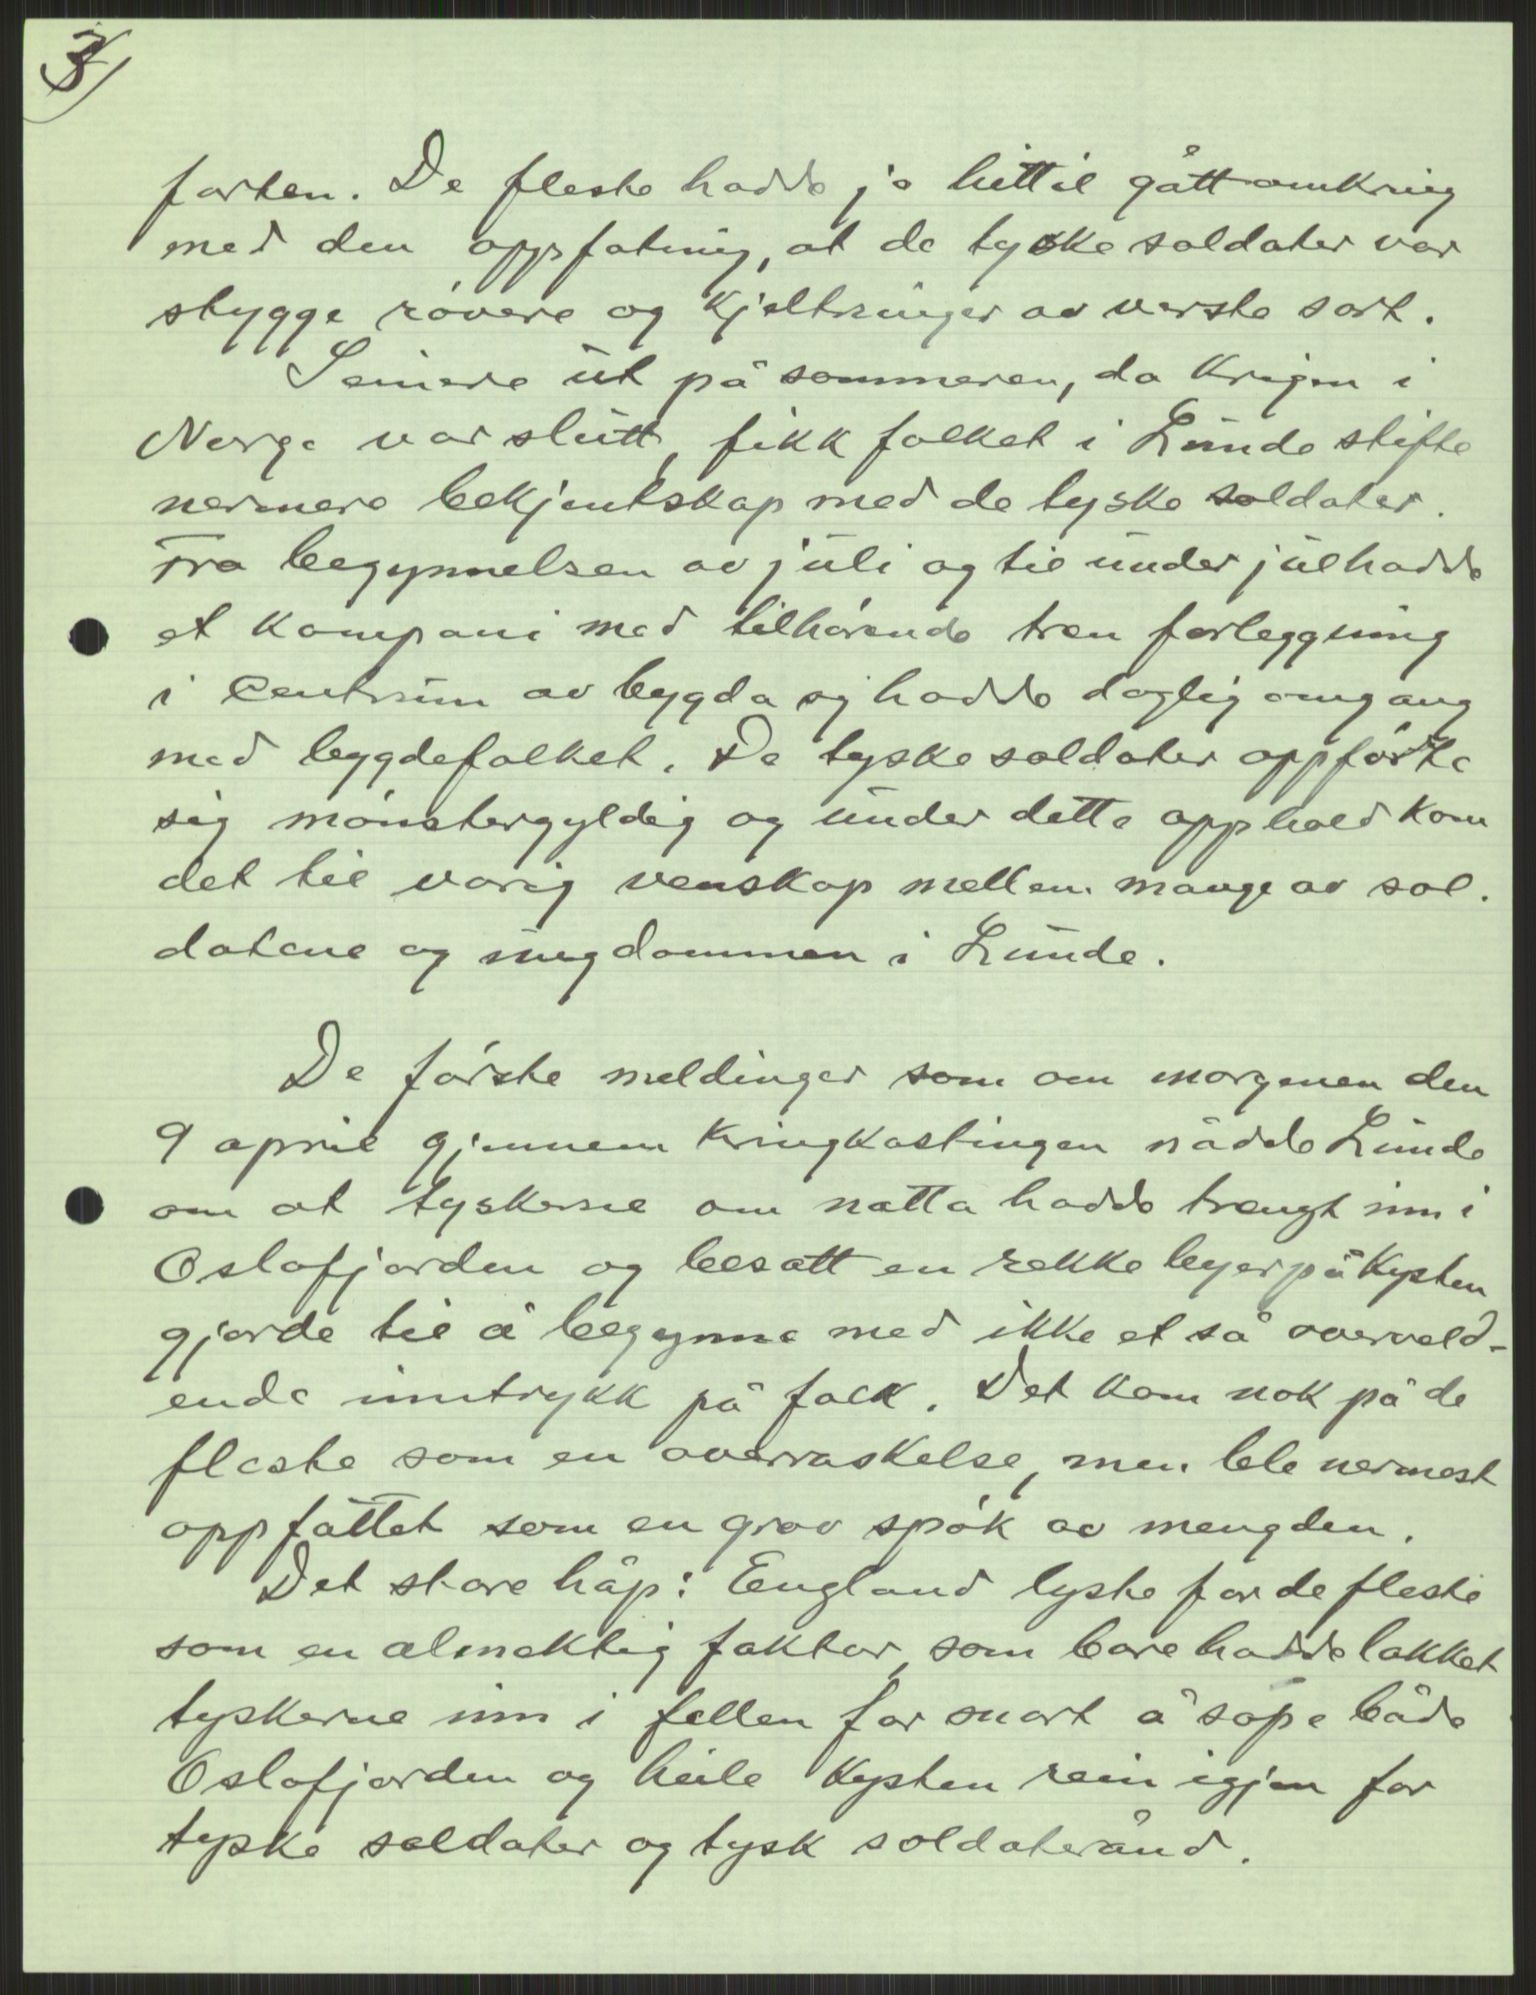 3
farten. De fleste hadde jo hittil gått omkring
med den oppfatning, at de tyske soldater var
stygge røvere og kjeltringer av verste sort.
Seinere ut på sommeren, da krigen i
Norge var slutt, fikk folket i Lunde stifte
nermere bekjentskap med de tyske soldater.
Fra begynnelsen av juli og til under jul hadde
et kompani med tilhørende tren forleggning
i centrum av bygda og hadde daglig omgang
med bygdefolket. De tyske soldater oppførte
sig mønstergyldig og under dette opphold kom
det til varig venskap mellem mange av sol-
datene og ungdommen i Lunde.
De første meldinger som om morgenen den
9 april gjennem kringkastingen nådde Lunde
om at tyskerne om natta hadde trengt inn i
Oslofjorden og besatt en rekke byer på kysten
gjorde til å begynne med ikke et så overveld-
ende inntrykk på folk. Det kom nok på de
fleste som en overraskelse, men ble nermest
oppfattet som en grov spøk av mengden.
Det store håp: England lyste for de fleste
som en almektig faktor, som bare hadde lokket
tyskerne inn i fellen for snart å sope både
Oslofjorden og heile kysten rein igjen for
tyske soldater og tysk soldaterånd.